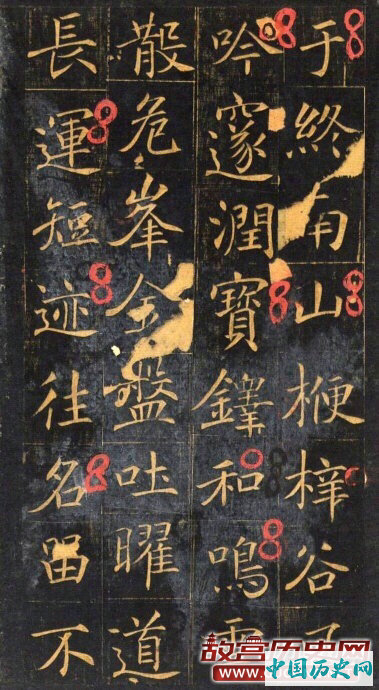 于終南山楩梓谷
吟邃潤寶鐸和鳴
散危峯金盤吐曜道
長運短迹往名留不
故宫历史网
中国历史网